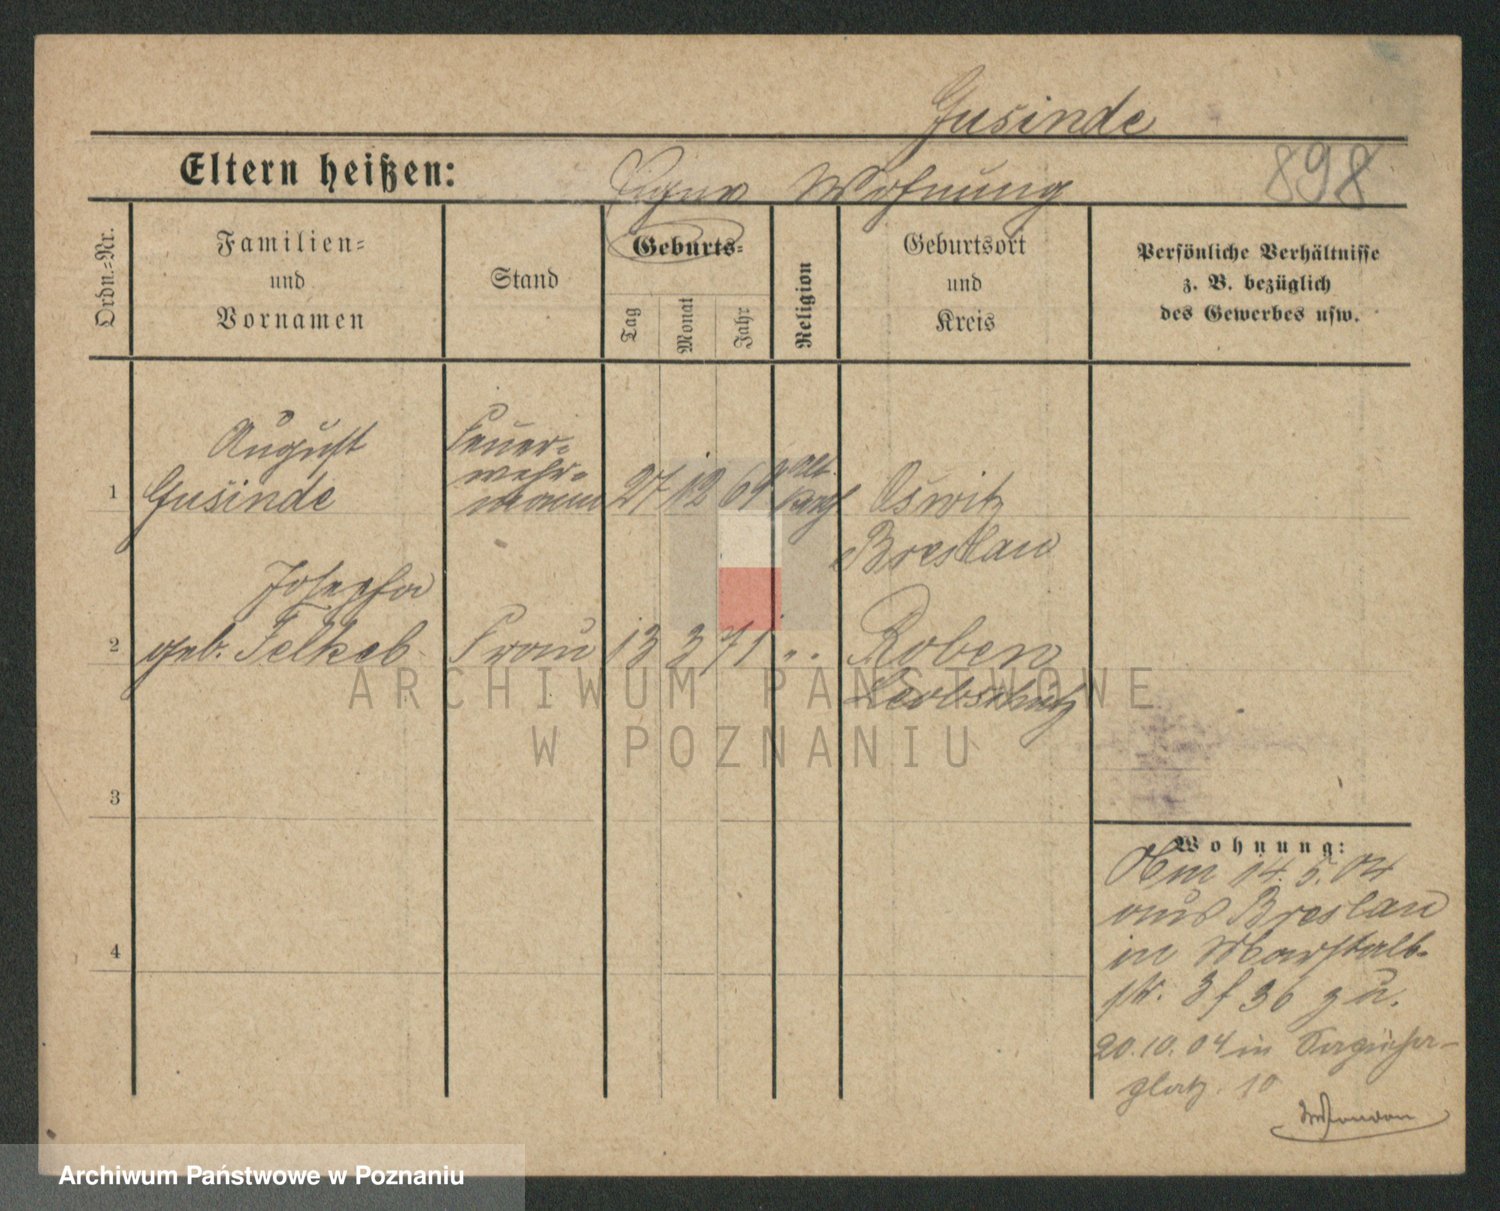 Gusinde
Eltern heißen:
Eigene Wohnung
898
Ordn.=Nr.
Familien=
und
Vornamen
Stand
Geburts=
Tag
Monat
Jahr
Religion
Geburtsort
und
Kreis
Persönliche Verhältnisse
z. B. bezüglich
des Gewerbes usw.
August
Gusinde
Feuer-
wehr-
mann
1
27 12 64
alt
kath
Oswitz
Breslau
Josepha
2
geb. Felkel
Frau
13 3 71
" "
Roben
Leobschütz
ARCHIWUM PAŃSTWOWE
W POZNANIU
3
4
Wohnung:
Am 14.5.04
aus Breslau
in Marstall-
str. 3 f 36 zu.
20.10.04 in
platz. 10
Archiwum Państwowe w Poznaniu